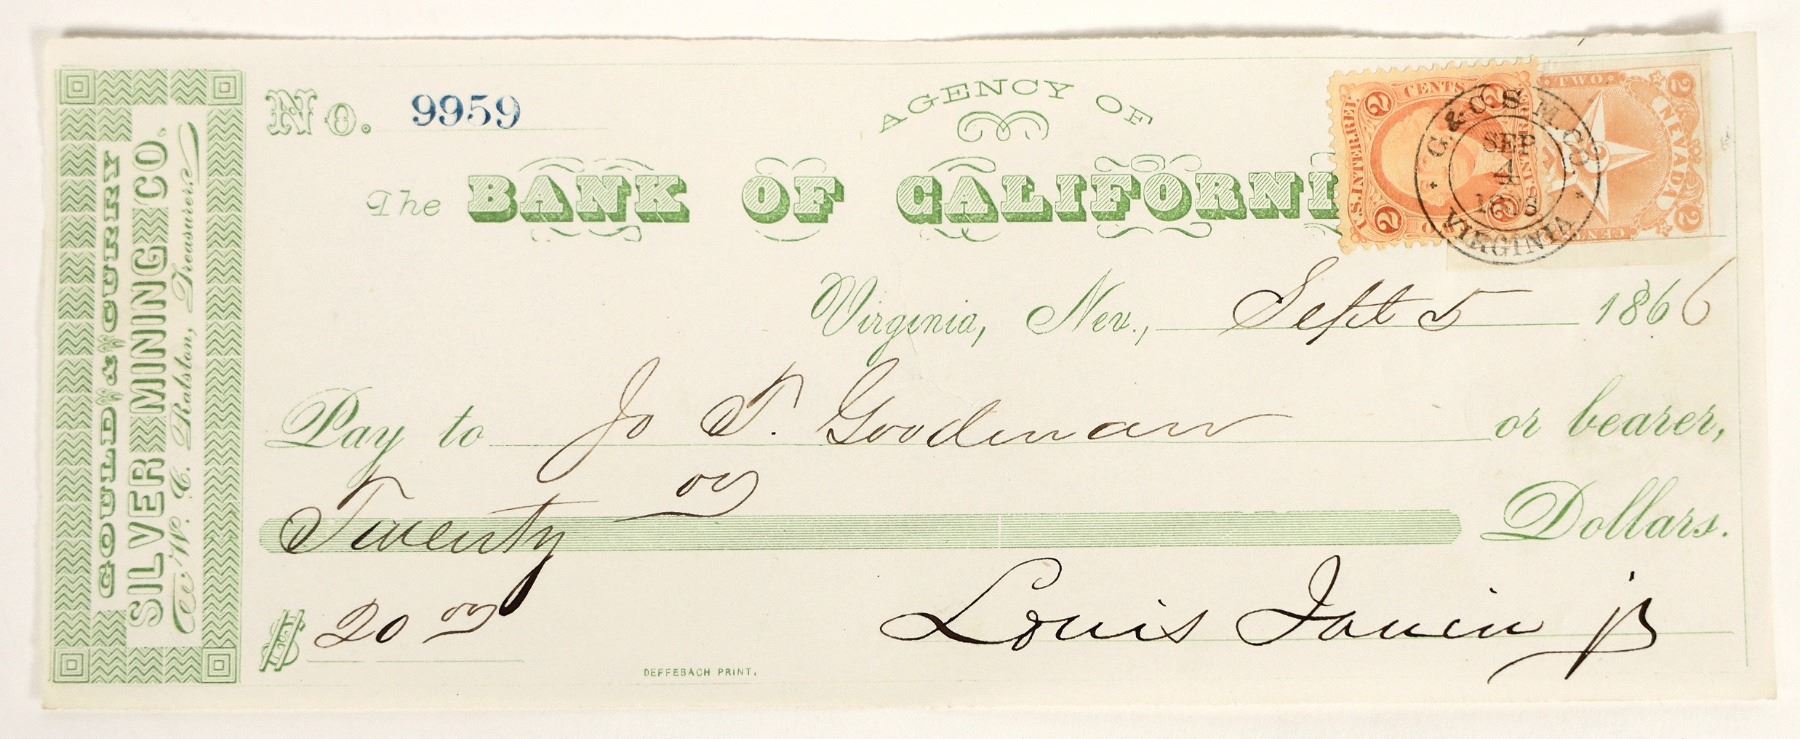 GOULD & CURRY
SILVER MINING CO.
W. C. Ralston, Treasurer
No. 9959
AGENCY OF
The BANK OF CALIFORNI
U.S. INTER. REV.
CENTS
2 2 2 2
TWO
NEVADA
CENTS
2 2
G. & C. S. M. CO.
SEP
4
VIRGINIA
Virginia, Nev., Sept 5 1866
Pay to Jo T. Goodman or bearer,
Twenty Dollars.
$ 20
Louis Janin jr
DEFFEBACH PRINT.